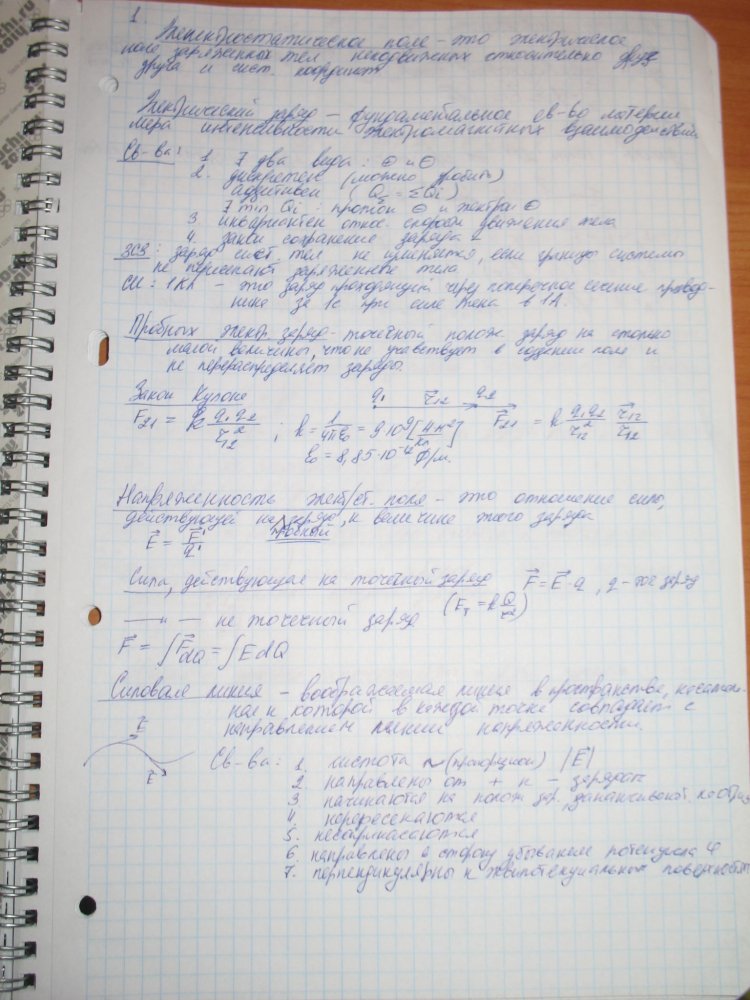 1.
Электростатическое поле - это электрическое
поле заряженных тел неподвижных относительно друг
друга и сист. координат
Электрический заряд - фундаментальное св-во материи
мера интенсивности электромагнитных взаимодействий
Св-ва: 1. ∃ два вида: ⊕ и ⊖
2. дискретен (можно дробить)
аддитивен (Q = ΣQi)
∃ min Qi: протон ⊕ и электрон ⊖
3 инвариантен относ. скорости движения тела
4. закон сохранения заряда
ЗСЗ: заряд сист. тел не изменяется, если границы системы
не пересекают заряженные тела
СИ: 1Кл - это заряд проходящий через поперечное сечение провод-
ника за 1с при силе тока в 1А.
Пробный электр. заряд - точечный полож. заряд на столько
малой величины, что не участвует в создании поля и
не перераспределяет заряды.
Закон Кулона q1 r⃗12 q2
F21 = k q1q2/r12² ; k = 1/4πε0 = 9·10⁹ [Н·м²/Кл] F⃗21 = k q1q2/r12² r⃗12/r12
ε0 = 8,85·10⁻¹² Ф/м.
Напряженность эл/ст. поля - это отношение силы,
действующей на заряд, к величине этого заряда
пробный
E⃗ = F⃗'/q'
Сила, действующая на точечный заряд F⃗ = E⃗·q, q - точ заряд
—— " — не точечный заряд (Eт = k Q/r²)
F⃗ = ∫F⃗dQ = ∫EdQ
Силовая линия - воображаемая линия в пространстве, касатель-
ная к которой в каждой точке совпадает с
направлением линии напряженности.
E⃗
E⃗
Св-ва: 1. густота ~ (пропорцион) |E⃗|
2. направлены от + к - зарядам
3 начинаются на полож зар. заканчивают. на отриц
4. непересекаются
5. несоприкасаются
6. направлены в сторону убывания потенциала φ
7. перпендикулярны к эквипотенциальным поверхностям